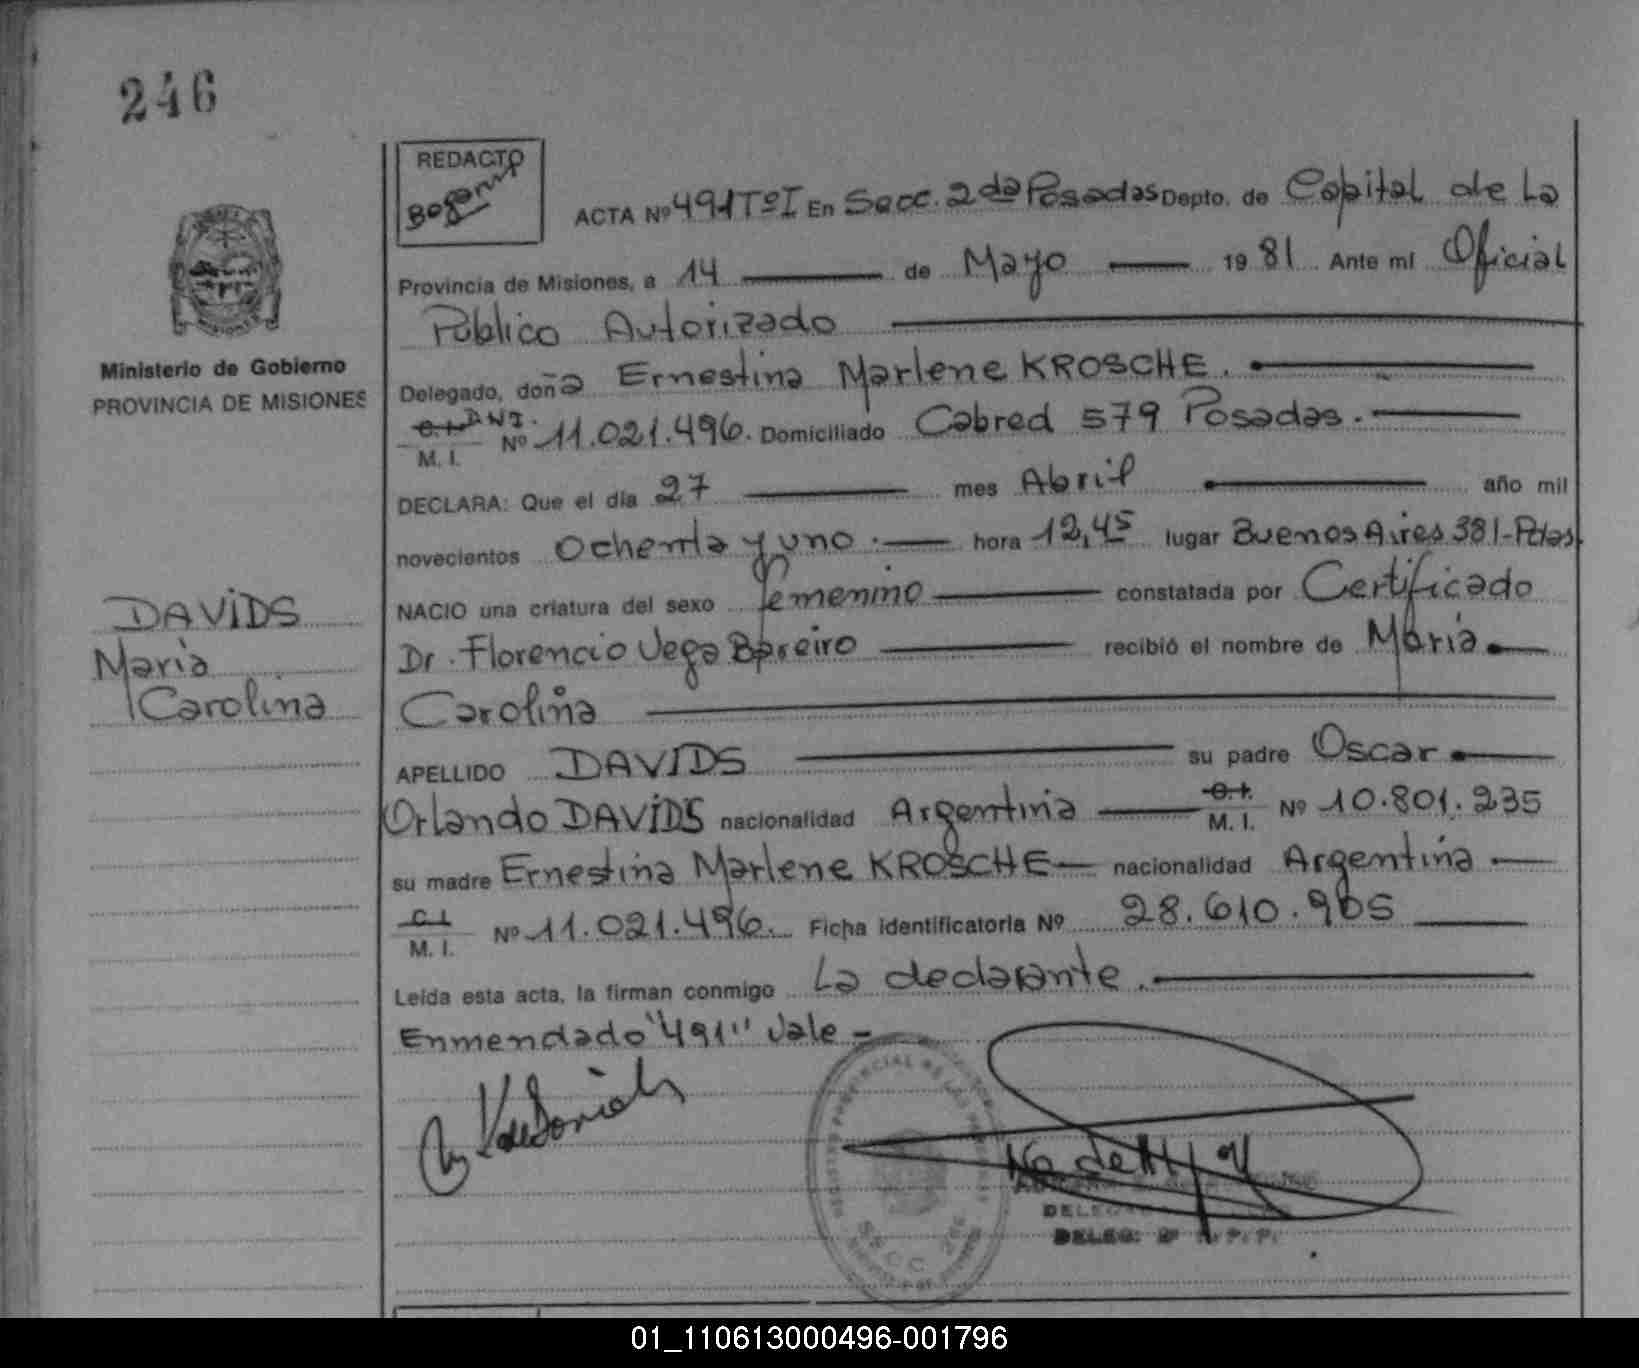 246
REDACTO
ACTA Nº 491 Tº I En Secc. 2da Posadas Depto. de Capital de La
Provincia de Misiones, a 14 de Mayo 1981 Ante mi Oficial
Público Autorizado
Ministerio de Gobierno
PROVINCIA DE MISIONES
Delegado, doña Ernestina Marlene KROSCHE.
C.I. DNI.
M. I. Nº 11.021.496. Domiciliado Cabred 579 Posadas.
DECLARA: Que el día 27 mes Abril año mil
novecientos Ochenta y uno. hora 12,45 lugar Buenos Aires 381-Pdas
NACIO una criatura del sexo femenino constatada por Certificado
DAVIDS
Maria
Carolina
Dr. Florencio Vega Bareiro recibió el nombre de María
Carolina
APELLIDO DAVIDS su padre Oscar
Orlando DAVIDS nacionalidad Argentina C.I. M. I. Nº 10.801.235
su madre Ernestina Marlene KROSCHE nacionalidad Argentina
C.I.
M. I. Nº 11.021.496. Ficha identificatoria Nº 28.610.905
Leída esta acta, la firman conmigo La declarante.
Enmendado "491" Vale -
SECC 2da
01_110613000496-001796